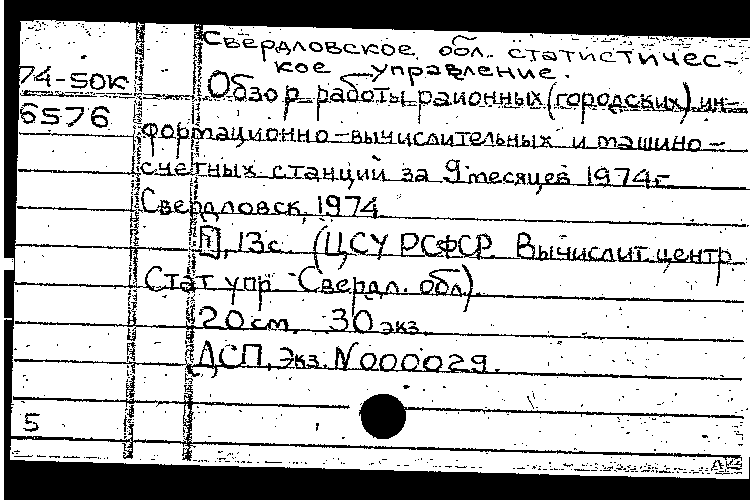 Свердловское обл. статистичес-
кое управление.
74-50к
Обзор работы районных (городских) ин-
6576
формационно-вычислительных и машино-
счетных станций за 9 месяцев 1974г.
Свердловск, 1974
[1], 13с. (ЦСУ РСФСР. Вычислит. центр
Стат упр. Свердл. обл.)
20 см. 30 экз.
ДСП, Экз. N 000029.
5